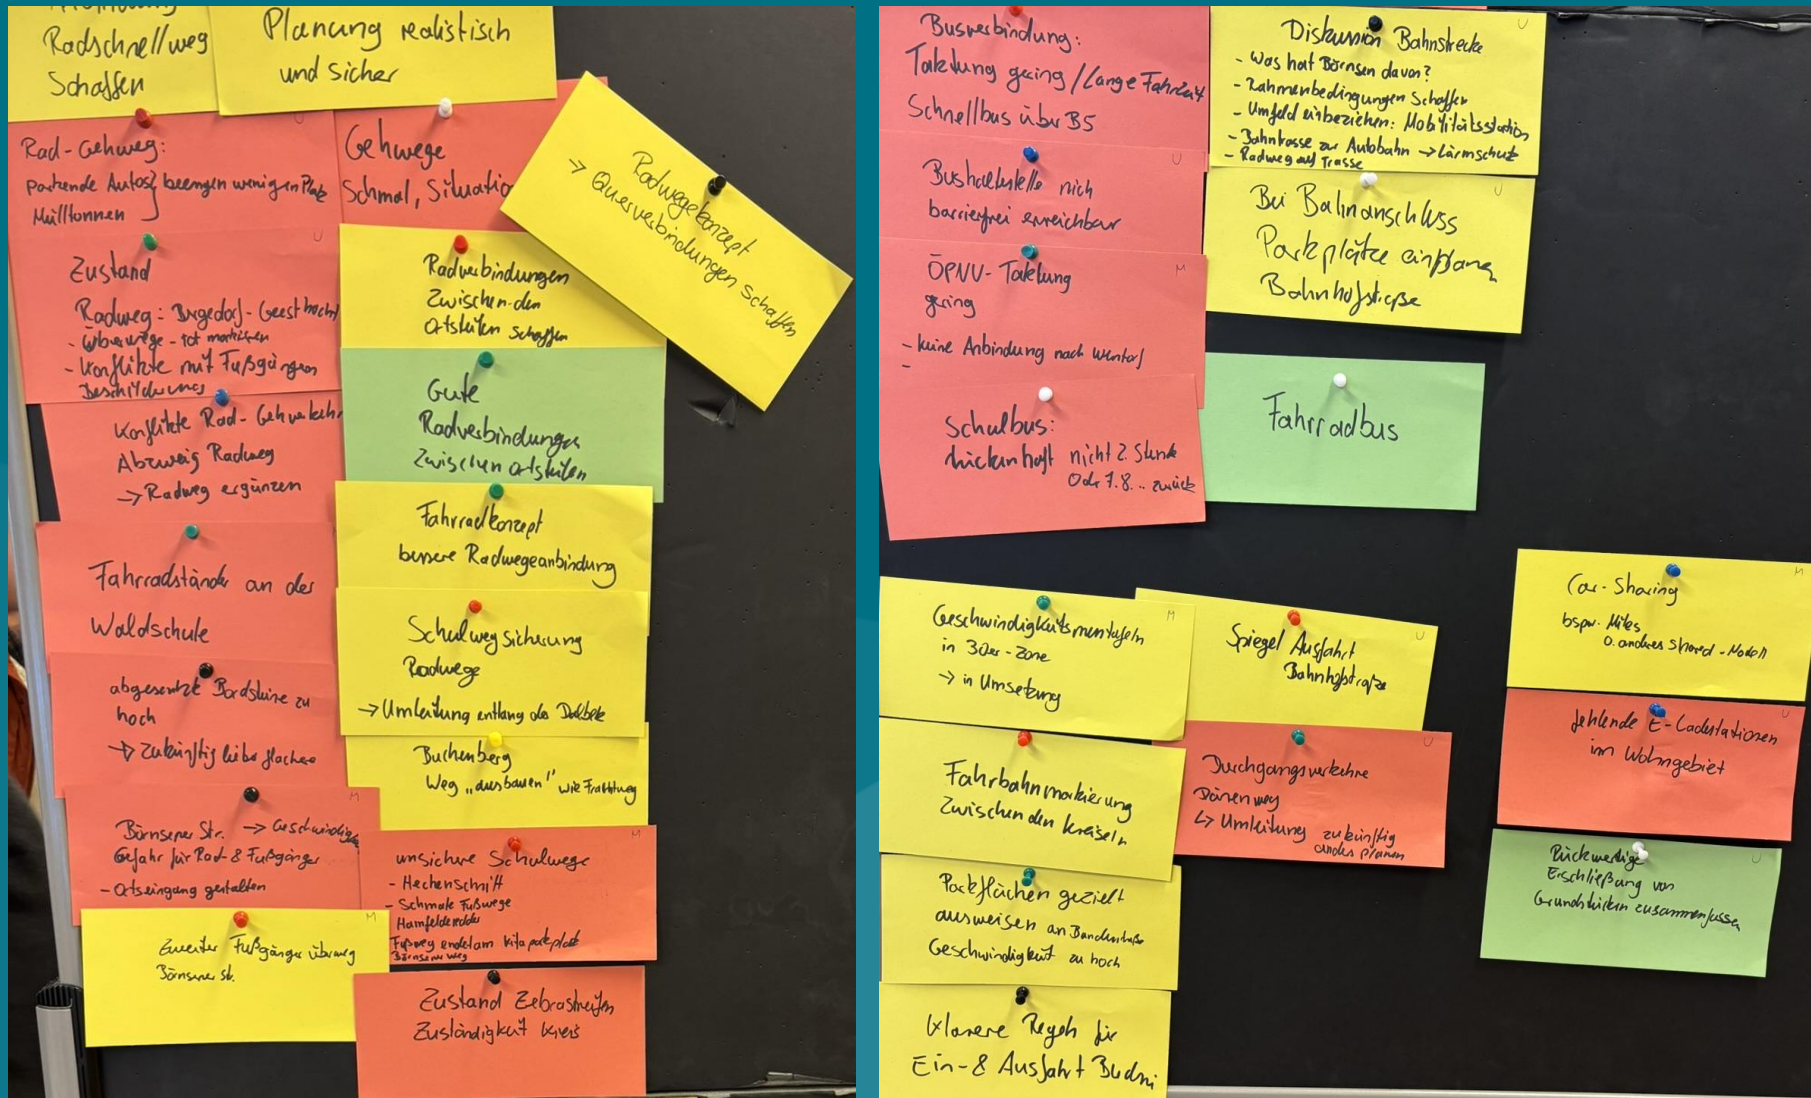 Radschnellweg
Schaffen
Planung realistisch
und sicher
Rad-Gehweg:
parkende Autos } beengen wenigen Platz
Mülltonnen
Gehwege
Schmal, Situatio
Radwegekonzept
→ Querverbindungen schaffen
Zustand
Radweg: Bergedorf-Geesthacht
- Überwege - rot markieren
- Konflikte mit Fußgängern
Beschilderung
Radverbindungen
Zwischen den
Ortsteilen schaffen
Gute
Radverbindungen
Zwischen Ortsteilen
Konflikte Rad-Gehverkehr
Abzweig Radweg
→ Radweg ergänzen
Fahrradkonzept
bessere Radwegeanbindung
Fahrradständer an der
Waldschule
Schulwegsicherung
Radwege
→ Umleitung entlang der
abgesenkte Bordsteine zu
hoch
→ Zukünftig lieber flachere
Buchenberg
Weg „ausbauen" wie Frachtweg
Börnsener Str. → Geschwindig
Gefahr für Rad- & Fußgänger
- Ortseingang gestalten
M
unsichere Schulwege
- Heckenschnitt
- Schmale Fußwege
Hamfelderedder
Fußweg endet am Kitaparkplatz
Börnsener Weg
M
Zweiter Fußgängerüberweg
Börnsener Str.
M
Zustand Zebrastreifen
Zuständigkeit Kreis
Busverbindung:
Taktung gering / Lange Fahrzeit
Schnellbus über B5
Diskussion Bahnstrecke
- Was hat Börnsen davon?
- Rahmenbedingungen Schaffen
- Umfeld einbeziehen: Mobilitätsstation
- Bahntrasse zur Autobahn → Lärmschutz
- Radweg auf Trasse
U
Bushaltestelle nich
barrierefrei erreichbar
U
Bei Bahnanschluss
Parkplätze einplanen
Bahnhofstraße
U
ÖPNV-Taktung
gering
- keine Anbindung nach Wentorf
-
M
Schulbus:
lückenhaft nicht 2. Stunde
Oder 7. 8... zurück
Fahrradbus
Geschwindigkeitsmesstafeln
in 30er-Zone
→ in Umsetzung
M
Spiegel Ausfahrt
Bahnhofstraße
U
Car-Sharing
bspw. Miles
o. anderes Shared-Modell
M
Fahrbahnmarkierung
Zwischen den Kreiseln
Durchgangsverkehre
Dänenweg
↳ Umleitung zukünftig
anders planen
U
fehlende E-Ladestationen
im Wohngebiet
U
Parkflächen gezielt
ausweisen an
Geschwindigkeit zu hoch
Rückwertige
Erschließung von
Grundstücken zusammenfassen
U
Klarere Regeln für
Ein- & Ausfahrt Budni